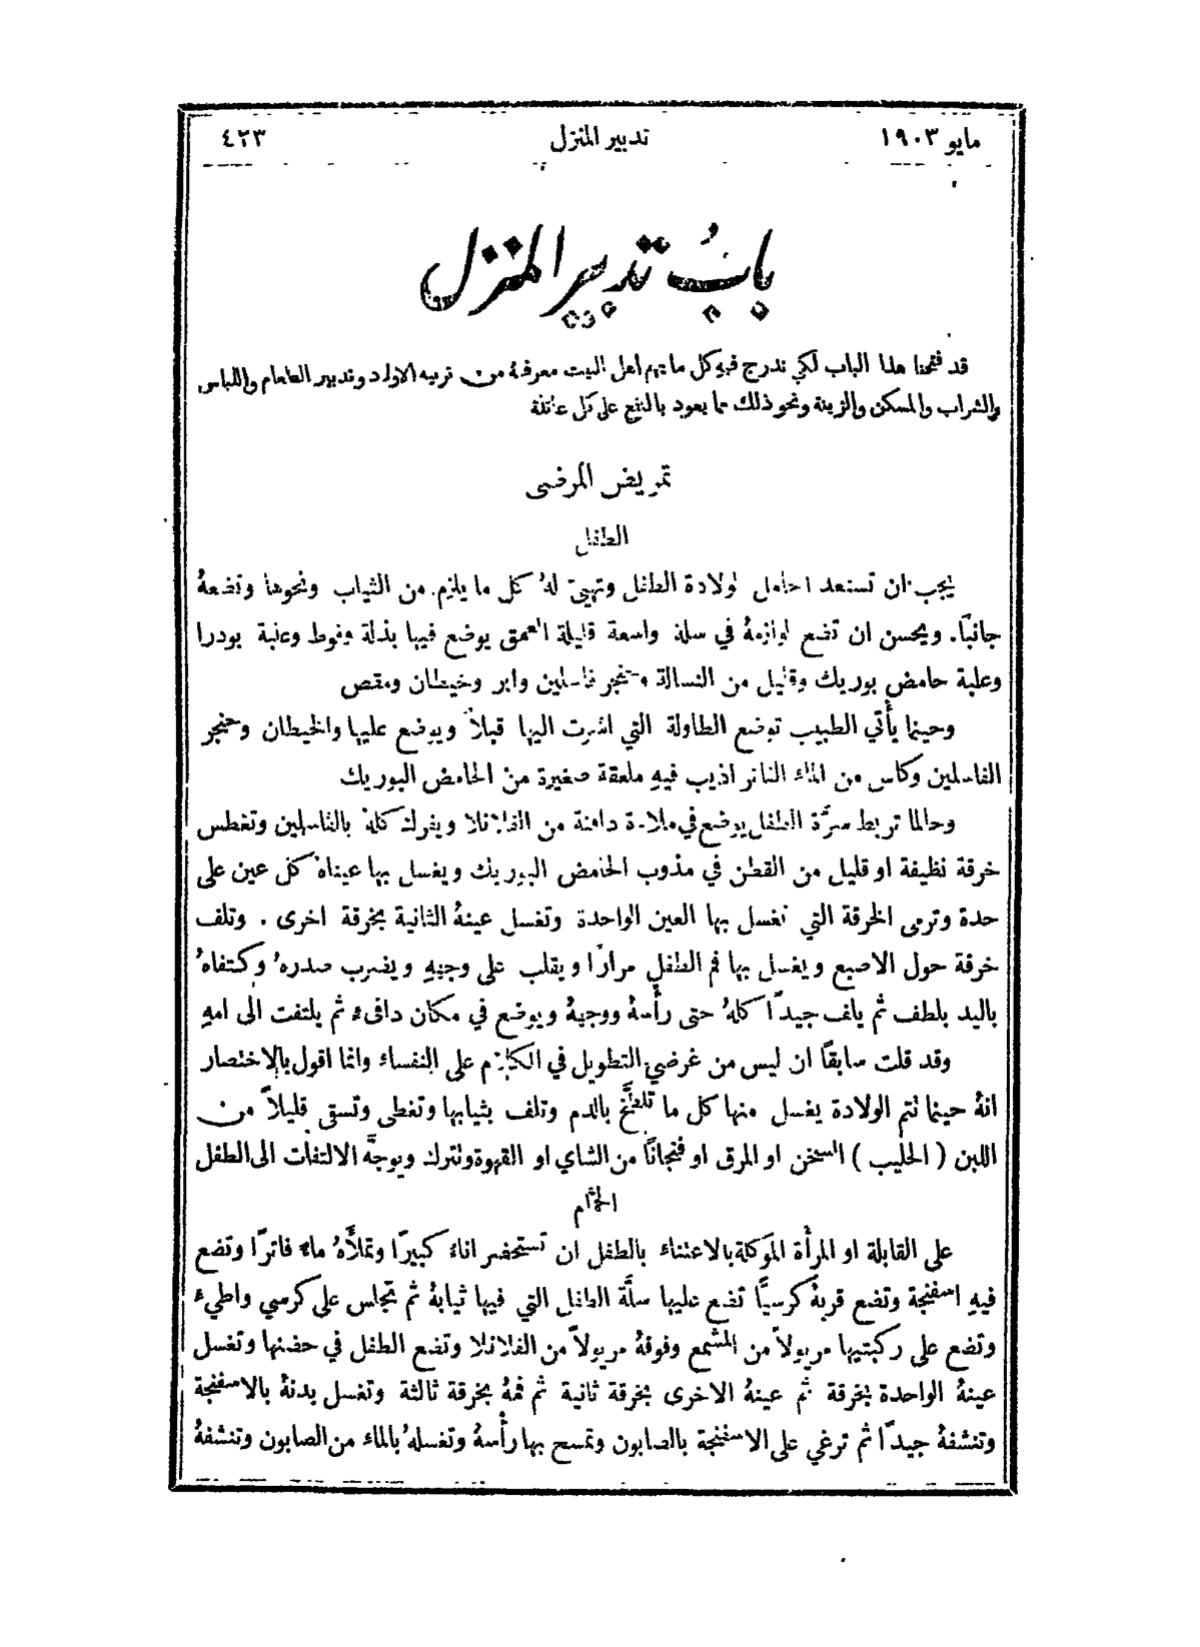 مايو ١٩٠٣ تدبير المنزل ٤٢٣
باب تدبير المنزل
قد فتحنا هذا الباب لكي ندرج فيهِ كل ما يهم اهل البيت معرفتهُ من تربية الاولاد وتدبير الطعام واللباس
والشراب والمسكن والزينة ونحو ذلك مما يعود بالنفع على كل عائلة
تمريض المرضى
الطفل
يجب ان تستعد الحامل لولادة الطفل وتهيئ لهُ كل ما يلزم من الثياب ونحوها وتضعهُ
جانبًا. ويحسن ان تضع لوازمهُ في سلة واسعة قليلة العمق يوضع فيها بذلة وفوط وعلبة بودرا
وعلبة حامض بوريك وقليل من النسالة وحنجر فاسلين وابر وخيطان ومقص
وحينما يأتي الطبيب توضع الطاولة التي اشرت اليها قبلاً ويوضع عليها والخيطان وحنجر
الفاسلين وكاس من الماء الفاتر اذيب فيهِ ملعقة صغيرة من الحامض البوريك
وحالما تربط سرَّة الطفل يوضع في ملاءة دافئة من الفلانلا ويفرك كلهُ بالفاسلين وتغطس
خرقة نظيفة او قليل من القطن في مذوب الحامض البوريك ويغسل بها عيناهُ كل عين على
حدة وترمى الخرقة التي تغسل بها العين الواحدة وتغسل عينهُ الثانية بخرقة اخرى . وتلف
خرقة حول الاصبع ويغسل بها فم الطفل مرارًا ويقلب على وجههِ ويضرب صدرهُ وكتفاهُ
باليد بلطف ثم يلف جيدًا كلهُ حتى رأسهُ ووجههُ ويوضع في مكان دافىء ثم يلتفت الى امهِ
وقد قلت سابقًا ان ليس من غرضي التطويل في الكلام على النفساء وانما اقول بالاختصار
انهُ حينما تتم الولادة يغسل منها كل ما تلطَّخ بالدم وتلف بثيابها وتغطى وتسقى قليلاً من
اللبن ( الحليب ) السخن او المرق او فنجانًا من الشاي او القهوة وتترك ويوجَّه الالتفات الى الطفل
الحمام
على القابلة او المرأة الموكلة بالاعتناء بالطفل ان تستحضر اناء كبيرًا وتملأَهُ ماء فاترًا وتضع
فيهِ اسفنجة وتضع قربهُ كرسيًّا تضع عليها سلَّة الطفل التي فيها ثيابهُ ثم تجلس على كرسي واطيء
وتضع على ركبتيها مريولاً من المشمع وفوقهُ مريولاً من الفلانلا وتضع الطفل في حضنها وتغسل
عينهُ الواحدة بخرقة ثم عينهُ الاخرى بخرقة ثانية ثم فمهُ بخرقة ثالثة وتغسل بدنهُ بالاسفنجة
وتنشفهُ جيدًا ثم ترغي على الاسفنجة بالصابون وتمسح بها رأسهُ وتغسلهُ بالماء من الصابون وتنشفهُ